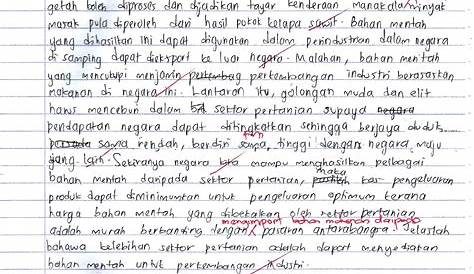 getah boleh diproses dan dijadikan tayar kenderaan manakala minyak
masak pula diperoleh dari hasil pokok kelapa sawit. Bahan mentah
yang dihasilkan ini dapat digunakan dalam perindustrian dalam negara
di samping dapat dieksport ke luar negara. Malahan, bahan mentah
yang mencukupi menjamin pertumbag perkembangan industri berasaskan
makanan di negara ini. Lantaran itu, golongan muda dan elit
harus menceburi dalam sektor pertanian supaya negara
pendapatan negara dapat ditingkatkan sehingga berjaya duduk
sama rendah, berdiri sama tinggi dengan negara maju
yang lain. Sekiranya negara kita mampu menghasilkan pelbagai
maka
bahan mentah daripada sektor pertanian, kos pengeluaran
produk dapat diminimumkan untuk pengeluaran optimum kerana
harga bahan mentah yang dibekalkan oleh sektor pertanian
mengimport bahan mentah daripada
adalah murah berbanding dengan pasaran antarabangsa. Jelaslah
bahawa kelebihan sektor pertanian adalah dapat menyediakan
bahan mentah untuk perkembangan industri.